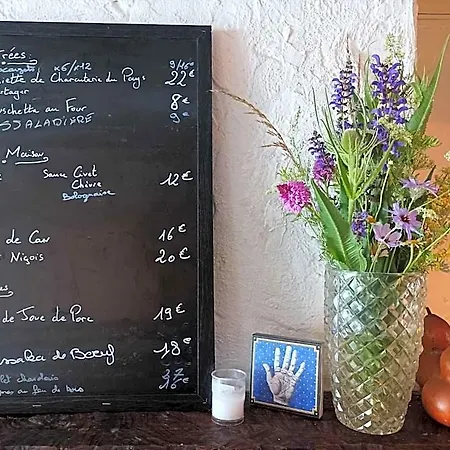 trées:
x6/x12 9/16€
iette de Charcuterie du Pays 22€
artager
uschette au Four 8€
SSALADIÈRE 9€
Maison
Sauce Civet
Chèvre 12€
Bolognaise
16€
Niçois 20€
es
de Joue de Porc 19€
ssaka de Boeuf 18€
au feu de bois 16€